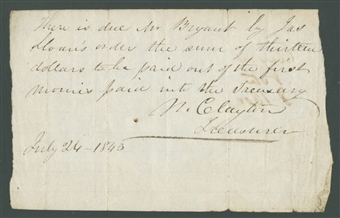 There is due Mr Bryant by Jas
Sloans order the sum of thirteen
dollars to be paid out of the first
monies paid into the Treasury
N. Clayton
Treasurer
July 24 - 1845